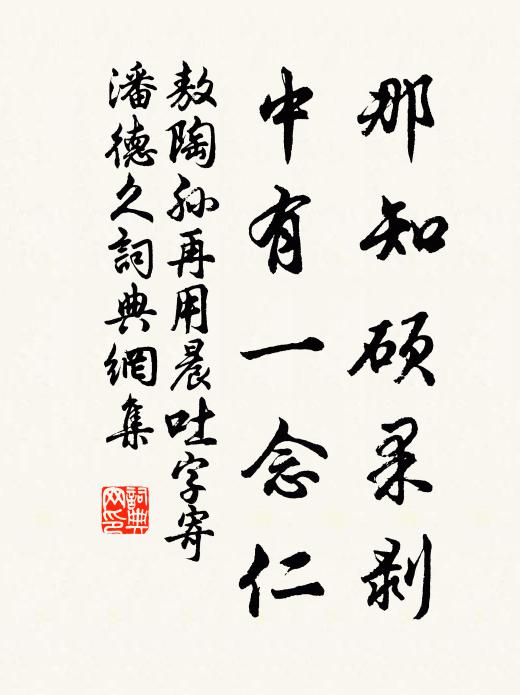 那知硕果剥
中有一念仁
敖陶孙再用晨吐字寄
潘德久詞典網集
詞典
网印